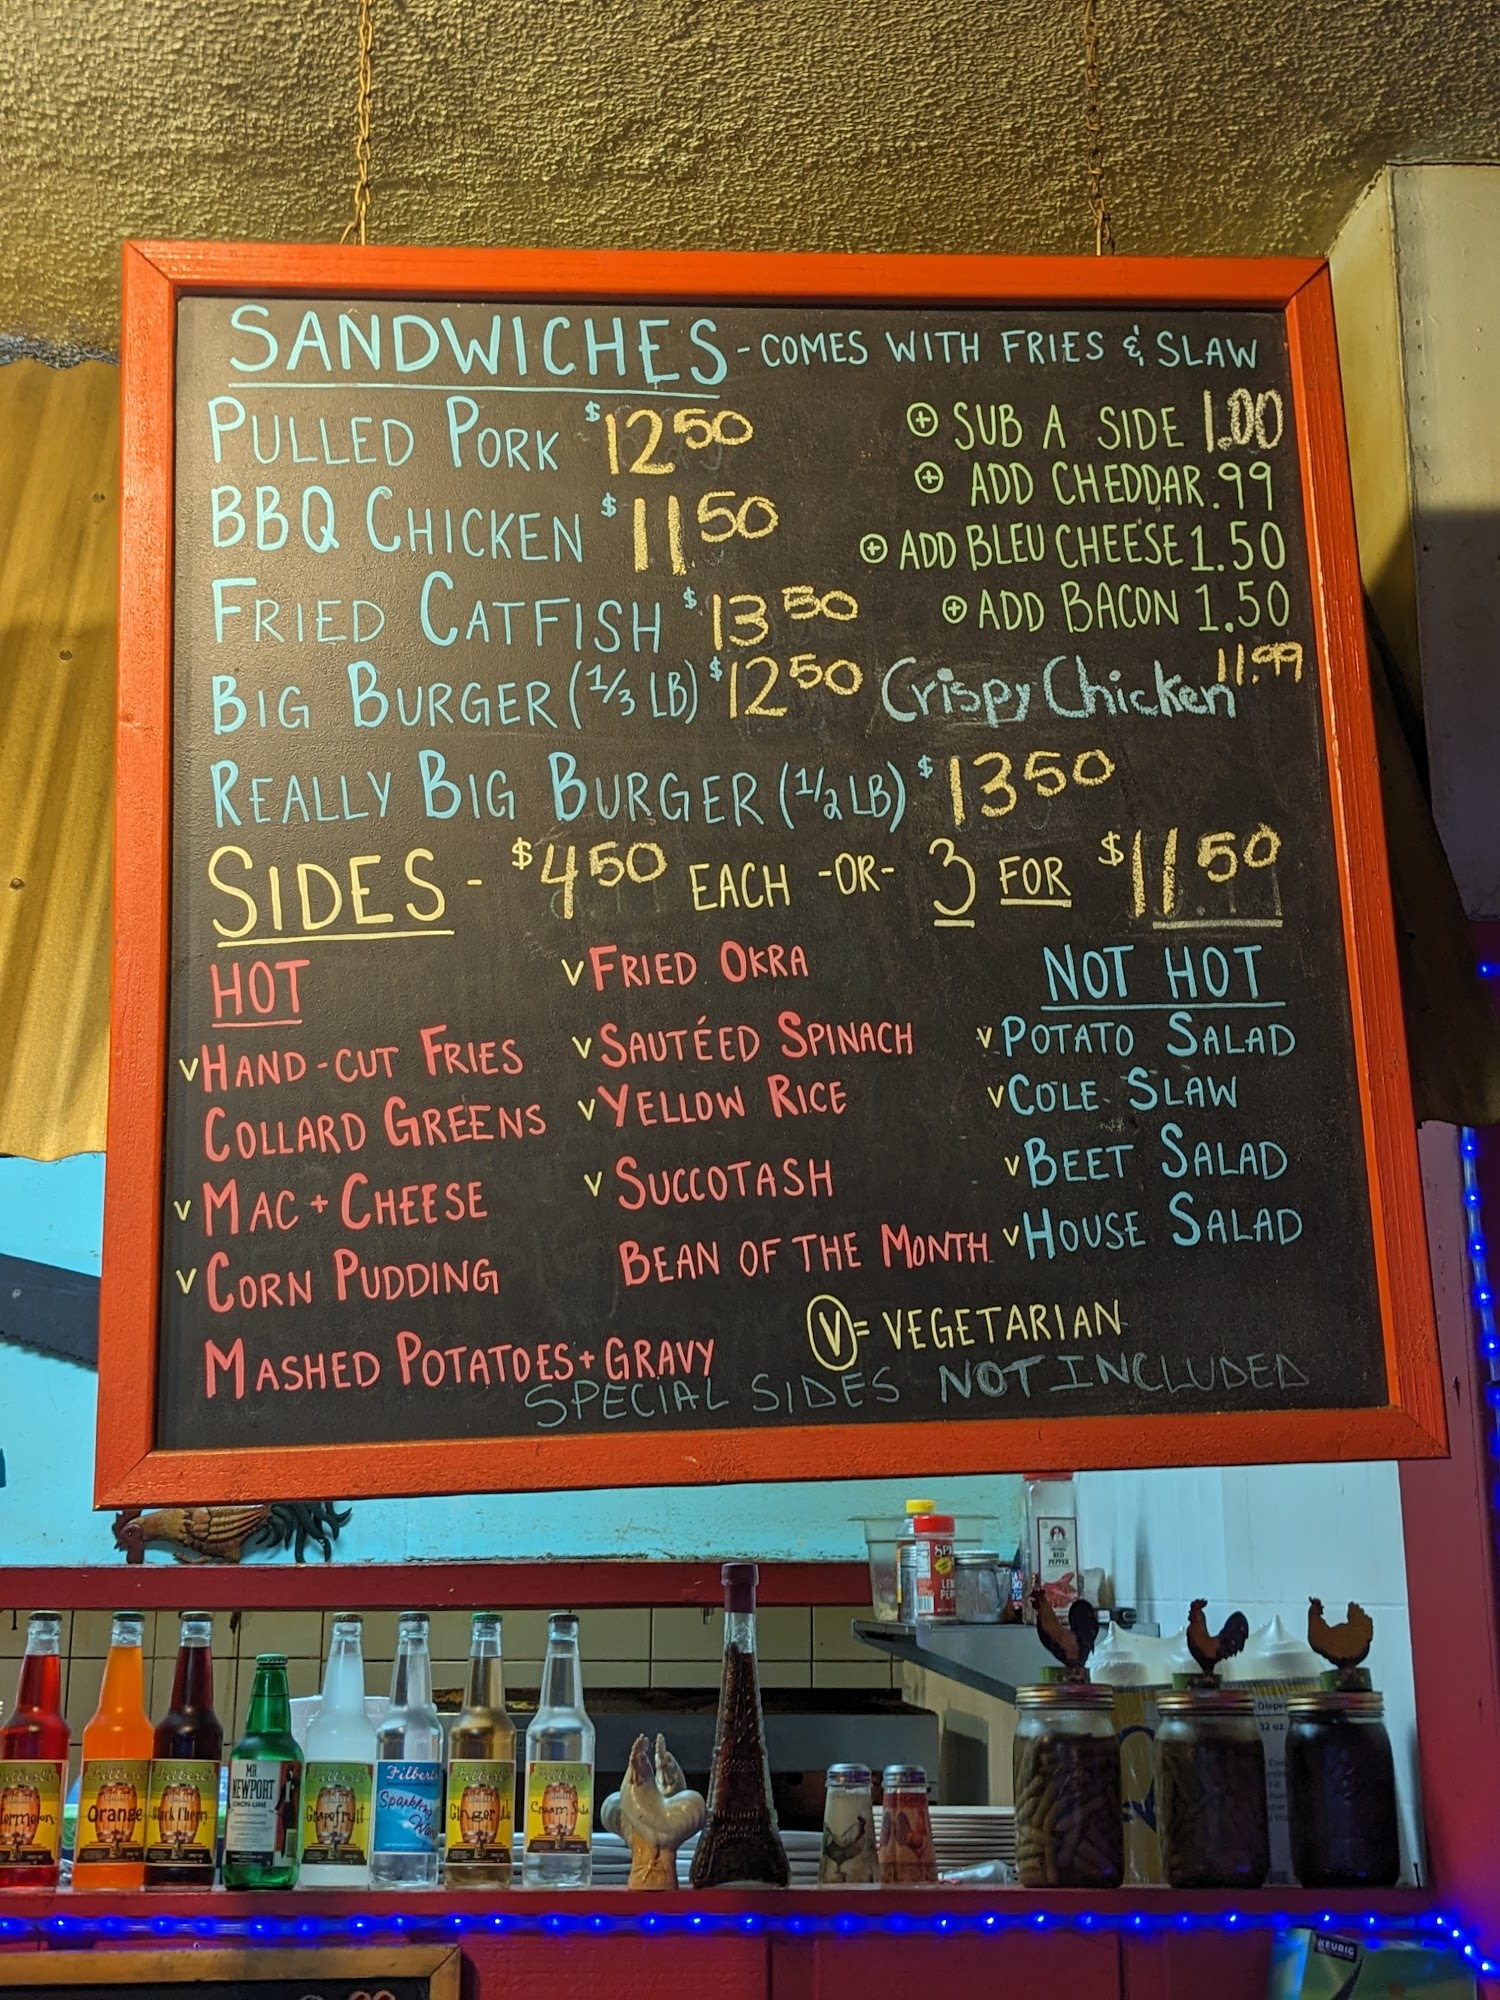 SANDWICHES - COMES WITH FRIES & SLAW
PULLED PORK $12 50
⊕ SUB A SIDE 1.00
BBQ CHICKEN $11 50
⊕ ADD CHEDDAR .99
⊕ ADD BLEU CHEESE 1.50
FRIED CATFISH $13 50
⊕ ADD BACON 1.50
BIG BURGER (1/3 LB) $12 50
Crispy Chicken 11.99
REALLY BIG BURGER (1/2 LB) $13 50
SIDES - $4 50 EACH -OR- 3 FOR $11 50
HOT
V HAND-CUT FRIES
COLLARD GREENS
V MAC + CHEESE
V CORN PUDDING
MASHED POTATOES + GRAVY
V FRIED OKRA
V SAUTÉED SPINACH
V YELLOW RICE
V SUCCOTASH
BEAN OF THE MONTH
NOT HOT
V POTATO SALAD
V COLE SLAW
V BEET SALAD
V HOUSE SALAD
V = VEGETARIAN
SPECIAL SIDES NOT INCLUDED
RED PEPPER
Orange
Black Cherry
MR. NEWPORT
LEMON-LIME
Grapefruit
Filbert's
Sparkling
Ginger Ale
Cream Soda
32 oz.
KEURIG